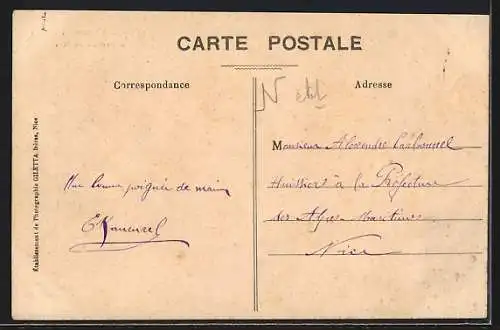 CARTE POSTALE
Correspondance
Adresse
Une bonne poignée de main
Monsieur Alexandre
Huissier à la Préfecture
des Alpes-Maritimes
Nice
Établissement de Photographie GILETTA frères, Nice